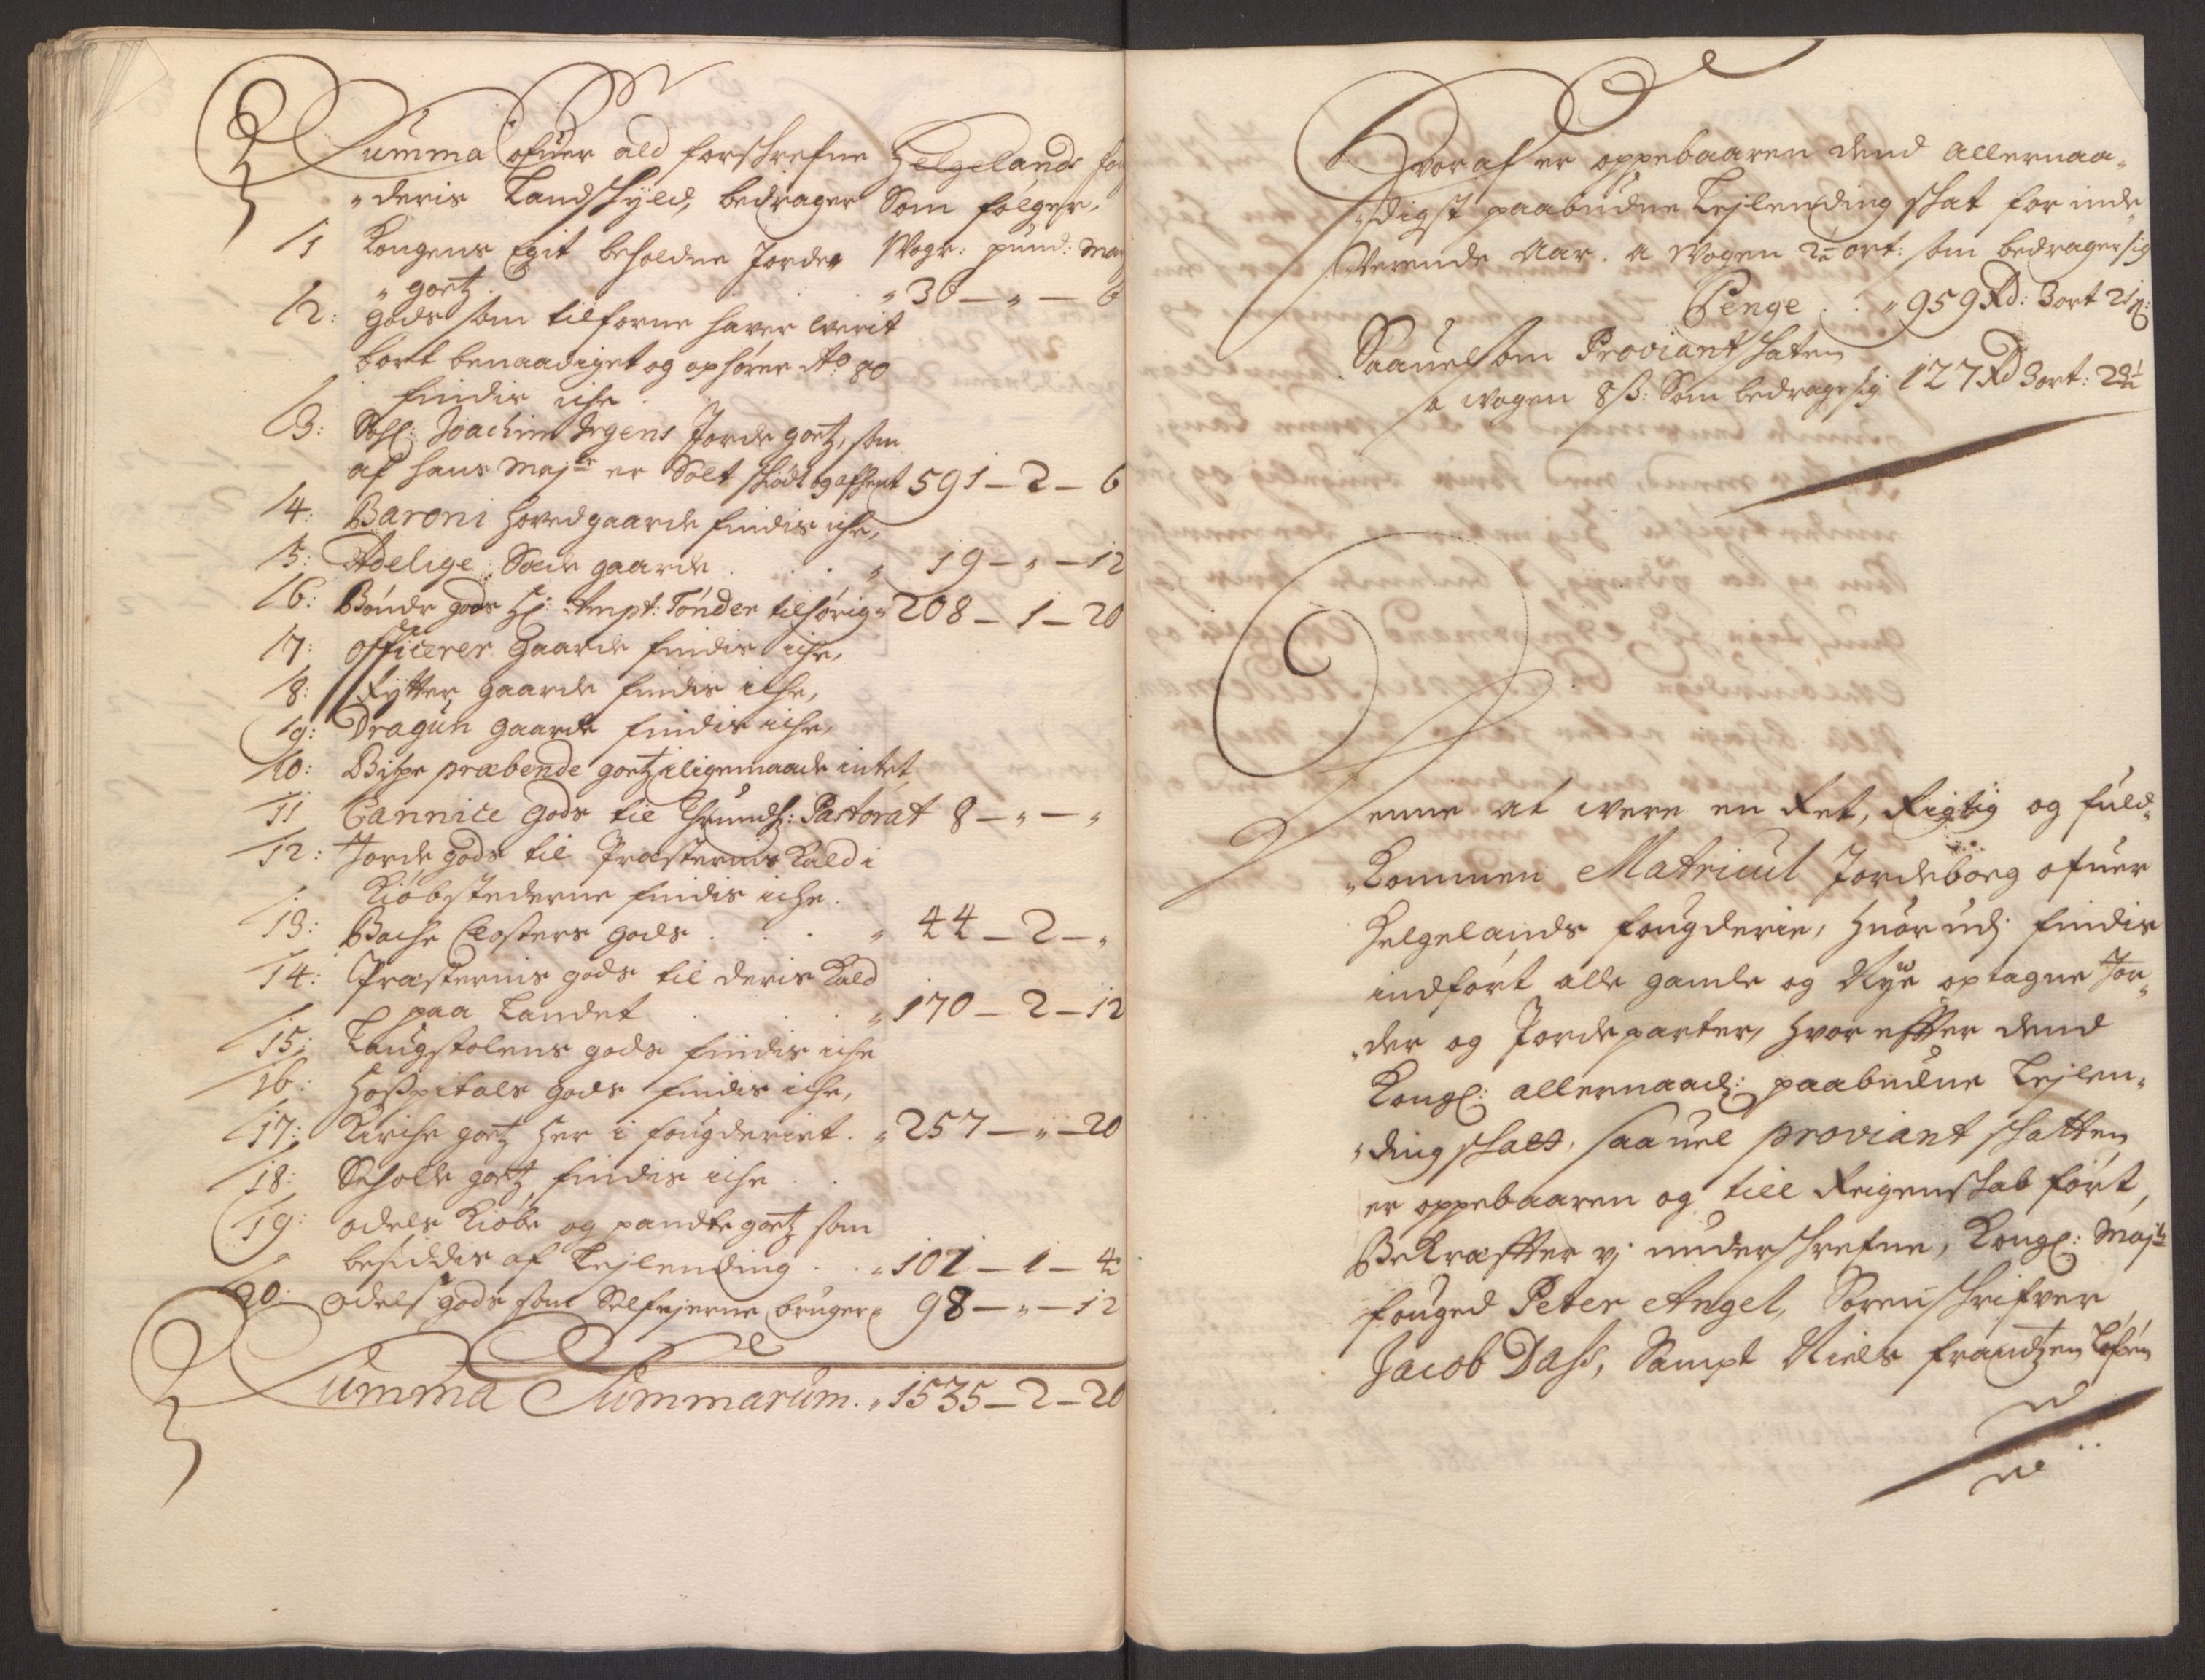 Summa ofuer ald forschrefne Helgelands fou
"deris Landschyld, bedrager Som følger,
1 Kongens Egit beholdne Jorde Wogr: pund: mar
" goetz . . . " 36 — " — 6
2: gods som tilforne hafver werit
bort benaadiget og ophører Ao 80
findis iche .
3: Sahl: Joachim Irgens Jorde goetz, som
af hans Majte er Sølt schiødt og afhent 591 — 2 — 6
4: Baroni hovedgaarde findis iche,
5: Adelige Sæde gaarde . . . " 19 — " — 12
6: Bønder gods Hr: Ampt: Tønder tilhørig " 208 — 1 — 20
7: officerer Gaarde findis iche,
8: Rytter gaarde findis iche,
9: Dragun gaarde findis iche,
10: Bispe præbende goetz iligemaade intet,
11 Cannice gods til Thrundh: Pastorat 8 — " — "
12: Jorde gods til Præsternis Kald i
Kiøbstederne findis iche .
13: Bache Closters gods . . . " 44 — 2 — "
14: Præsternis gods til deris Kald
paa Landet . . . " 170 — 2 — 12
15: Laugstolens gods findis iche
16: Hospitals gods findis iche,
17: Kirche goetz her i fougderiet . " 257 — " — 20
18: Schole goetz findis iche . .
19: odels Kiøbe og pandte goetz som
besiddis af Lejlending . . " 101 — 1 — 4
20: odels gods som Selfejerne bruger " 98 — " — 12
Summa Summarum . " 1535 — 2 — 20
Hvoraf er oppebaaren dend allernaa-
"digst paabudne Lejlending schat for inde-
Werende Aar. a Wogen 2½ ort: som bedrager sig
Penge . . " 959 Rd: 3 ort 21 ß:
Saauelsom Proviant schaten
a wogen 8 ß: Som bedrager sig 127 Rd 3 ort: 22½
Denne at were en Ret, Rigtig og fuld-
"Kommen Matricul Jordebog ofuer
Helgelands fougderie, huorudj findis
indført alle gamle og Nye optagne Jor-
"der og Jordeparter, hvor effter dend
Kongl: allernaad: paabudne Lejlen-
"ding schatt, saauel proviant schatten
er oppebaaren og till Reigenschab ført,
Bekræffter vj underschrefne, Kongl: Majts
fouged Peter Angel, Sorenschrifver
Jacob Dass, Sampt Niels frandtzen